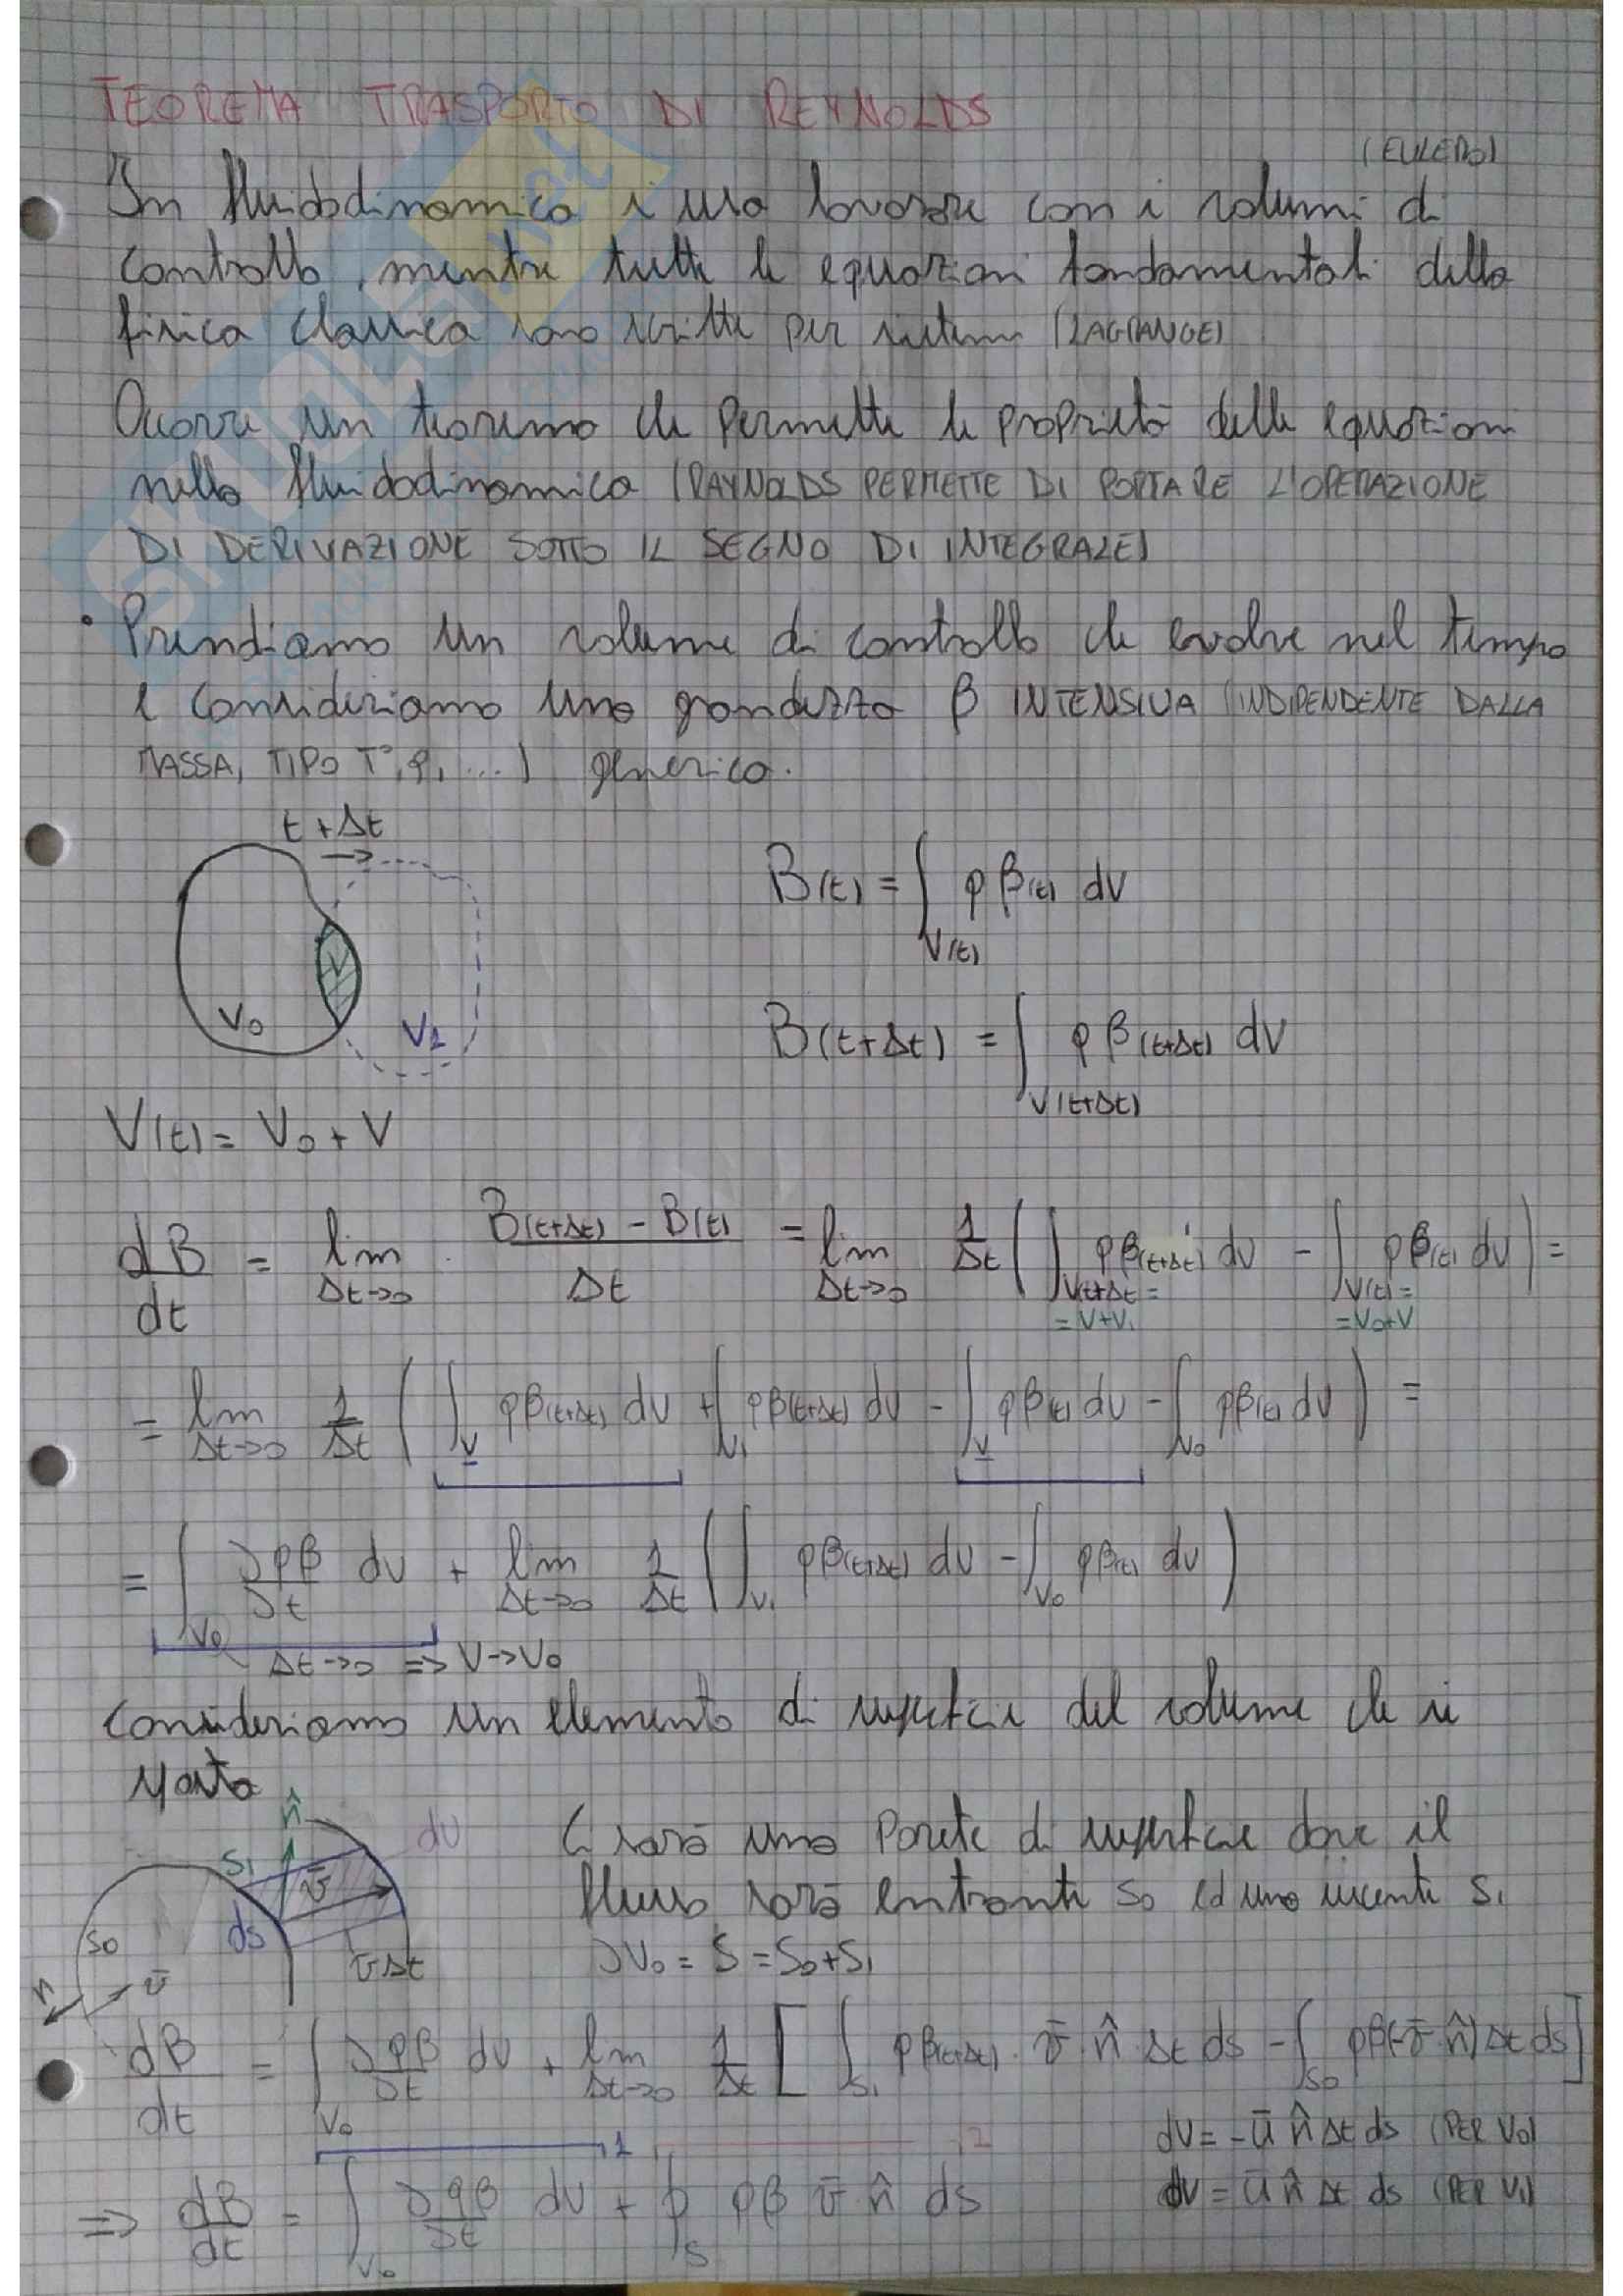 TEOREMA TRASPORTO DI REYNOLDS
(EULERO)
In fluidodinamica si usa lavorare con i volumi di
controllo, mentre tutte le equazioni fondamentali della
fisica classica sono scritte per sistemi (LAGRANGE)
Occorre un teorema che permette le proprietà delle equazioni
nella fluidodinamica (RAYNOLDS PERMETTE DI PORTARE L'OPERAZIONE
DI DERIVAZIONE SOTTO IL SEGNO DI INTEGRALE)
• Prendiamo un volume di controllo che evolve nel tempo
e consideriamo una grandezza β INTENSIVA (INDIPENDENTE DALLA
MASSA, TIPO T°, ρ, ...) generica.
t + Δt
V₀ V V₁
B(t) = ∫_V(t) ρβ(t) dV
B(t+Δt) = ∫_V(t+Δt) ρβ(t+Δt) dV
V(t) = V₀ + V
dB/dt = lim_Δt→0 (B(t+Δt) - B(t))/Δt = lim_Δt→0 1/Δt ( ∫_V(t+Δt)= =V+V₁ ρβ(t+Δt) dV - ∫_V(t)= =V₀+V ρβ(t) dV ) =
= lim_Δt→0 1/Δt ( ∫_V ρβ(t+Δt) dV + ∫_V₁ ρβ(t+Δt) dV - ∫_V ρβ(t) dV - ∫_V₀ ρβ(t) dV ) =
= ∫_V₀ ∂ρβ/∂t dV + lim_Δt→0 1/Δt ( ∫_V₁ ρβ(t+Δt) dV - ∫_V₀ ρβ(t) dV )
Δt→0 => V→V₀
Consideriamo un elemento di superficie del volume che si
sposta
n̂ S₁ v̄ dV dS S₀ v̄Δt n v̄
Ci sarà una parete di superficie dove il
flusso sarà entrante S₀ ed una uscente S₁
∂V₀ = S = S₀+S₁
dB/dt = ∫_V₀ ∂ρβ/∂t dV + lim_Δt→0 1/Δt [ ∫_S₁ ρβ(t+Δt) · v̄ · n̂ Δt ds - ∫_S₀ ρβ(-v̄ · n̂)Δt ds ]
1 2
dV = -ū n̂ Δt ds (PER V₀)
dV = ū n̂ Δt ds (PER V₁)
=> dB/dt = ∫_V₀ ∂ρβ/∂t dV + ∮_S ρβ v̄ · n̂ ds